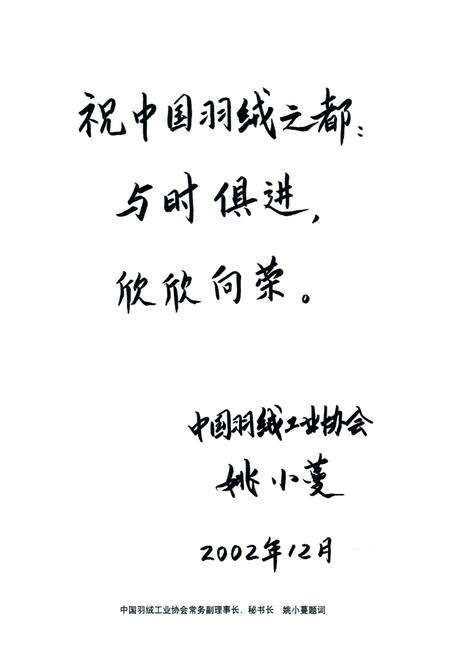 祝中国羽绒之都：
与时俱进，
欣欣向荣。
中国羽绒工业协会
姚小蔓
2002年12月
中国羽绒工业协会常务副理事长、秘书长　姚小蔓题词